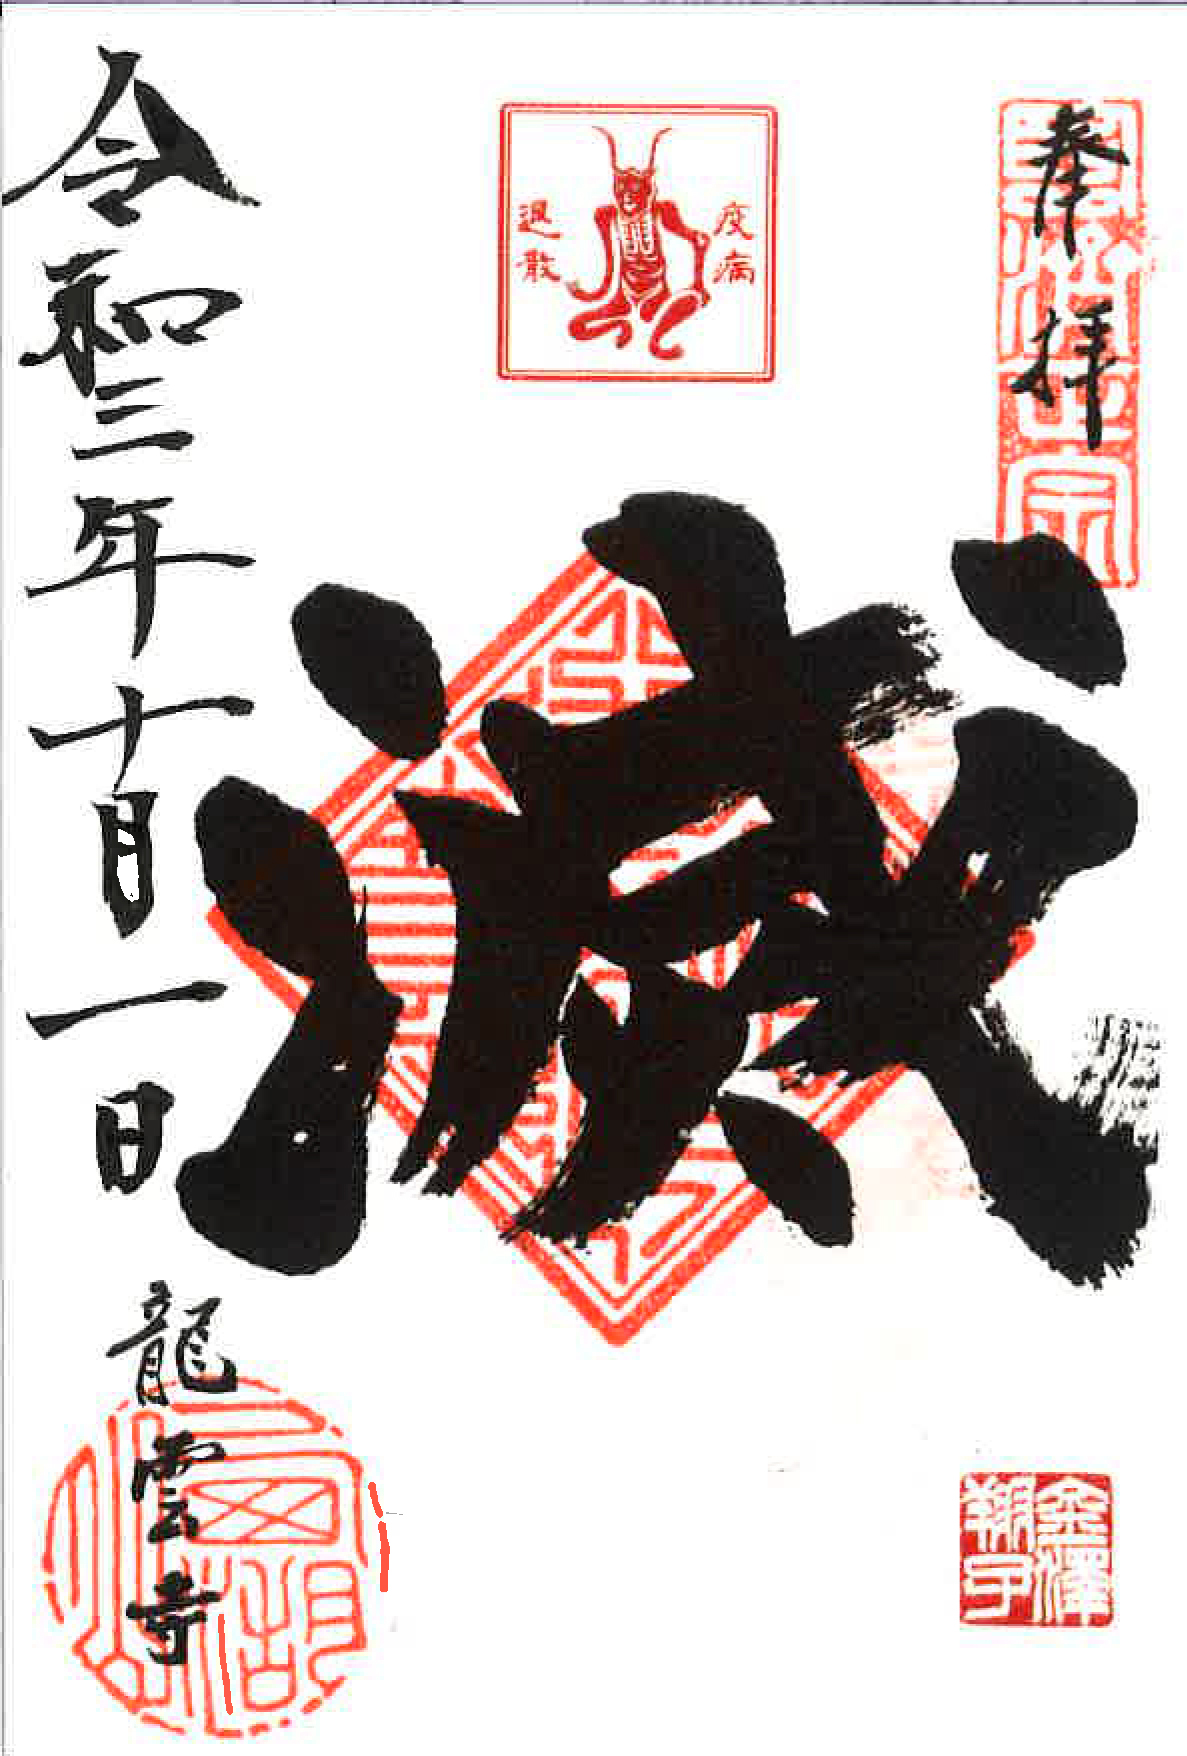 奉拝
疫病
退散
滅
令和三年十月一日
龍雲寺
金澤
翔子